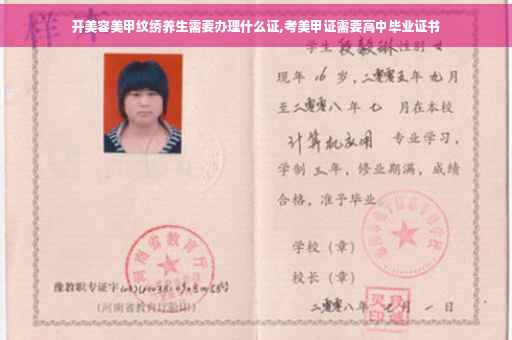 样本
开美容美甲纹绣养生需要办理什么证,考美甲证需要高中毕业证书
学生 段毅琳 性别 女
现年 16 岁,二零零五年 九月
至二零零八年 七 月在本校
计算机应用 专业学习,
学制 三 年, 修业期满, 成绩
合格, 准予毕业
学校(章)
校长(章)
二零零八年 七 月 一 日
河南省教育厅
豫教职专证字
(河南省教育厅验印)